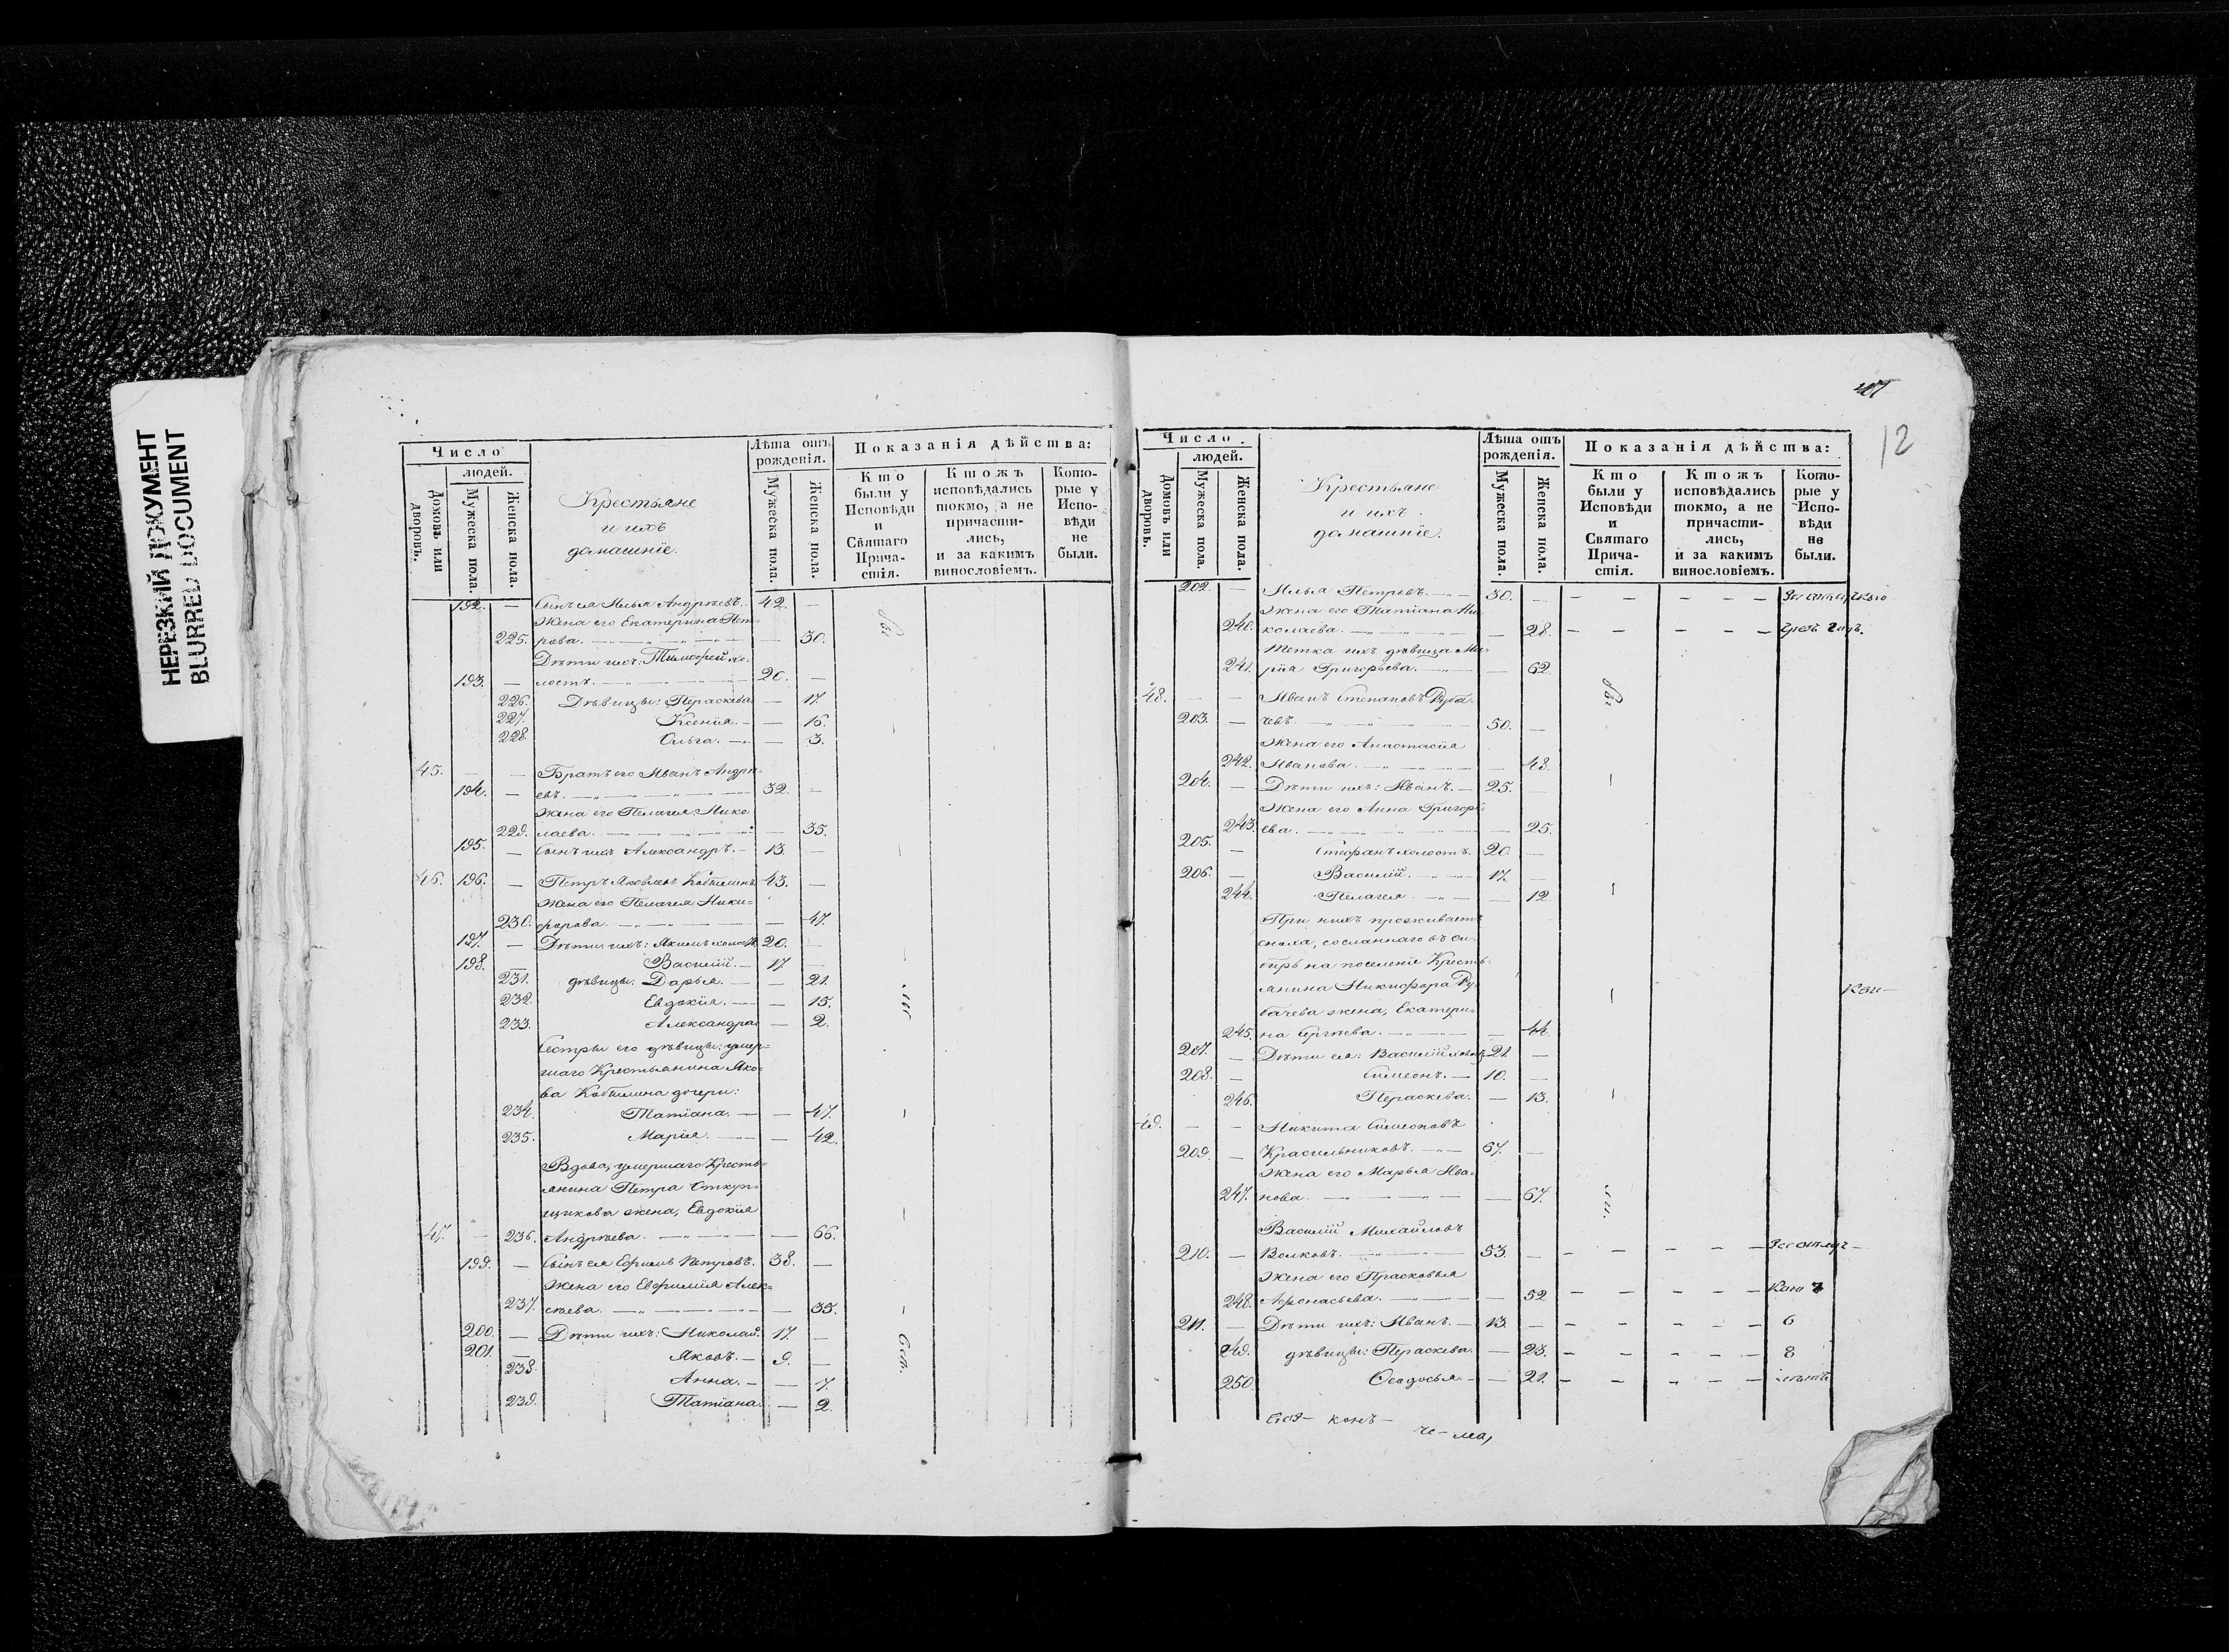 НЕРЕЗКИЙ ДОКУМЕНТ
BLURRED DOCUMENT
Число
людей.
Домовъ или дворовъ.
Мужеска пола.
Женска пола.
Крестьяне
и ихъ
домашніе.
Лѣта отъ рожденія.
Мужеска пола.
Женска пола.
Показанія дѣйства:
Кто были у Исповѣди и Святаго Прича-стія.
Ктожъ исповѣдались токмо, а не причасти-лись, и за какимъ винословіемъ.
Кото-рые у Испо-вѣди не были.
192. — Сынъ ея Илья Андреевъ. 42. —
Жена его Екатерина Пет-
225. рова. — 30.
Дѣти ихъ: Тимофей хо-
193. — лостъ. 20. —
226. Дѣвицы: Параскева — 17.
227. Ксенія. — 16.
228. Ольга. — 3.
45. — — Братъ его Иванъ Андре-
194. — евъ. 32. —
Жена его Пелагея Нико-
229. лаева. — 35.
195. — Сынъ ихъ Александръ. 13. —
46. 196. — Петръ Яковлевъ Кобылинъ 43. —
Жена его Пелагея Ники-
230. форова. — 47.
197. — Дѣти ихъ: Якимъ холостъ 20. —
198. — Василій. 17. —
231. дѣвицы: Дарья. — 21.
232. Евдокія. — 15.
233. Александра — 2.
Сестры его дѣвицы: умер-
шаго Крестьянина Яко-
ва Кобылина дочери:
234. Татіана. — 47.
235. Марія. — 42.
Вдова, умершаго Кресть-
янина Петра Откуп-
щикова жена, Евдокія
47. — 236. Андреева. — 66.
199. — Сынъ ея Ефимъ Петровъ. 38. —
Жена его Евфимія Алек-
237. сѣева. — 35.
200. — Дѣти ихъ: Николай. 17. —
201. — Яковъ. 9. —
238. Анна. — 7.
239. Татіана. — 2.
12
Число
людей.
Домовъ или дворовъ.
Мужеска пола.
Женска пола.
Крестьяне
и ихъ
домашніе.
Лѣта отъ рожденія.
Мужеска пола.
Женска пола.
Показанія дѣйства:
Кто были у Исповѣди и Святаго Прича-стія.
Ктожъ исповѣдались токмо, а не причасти-лись, и за какимъ винословіемъ.
Кото-рые у Испо-вѣди не были.
202. — Илья Петровъ. 30. —
Жена его Татіана Ни-
240. колаева. — 28.
Тетка ихъ дѣвица Ма-
241. рія Григорьева. — 62.
48. — — Иванъ Степановъ Руба-
203. — чевъ. 50. —
Жена его Анастасія
242. Иванова. — 48.
204. — Дѣти ихъ: Иванъ. 25. —
Жена его Анна Григорь-
243. ева. — 25.
205. — Стефанъ холостъ. 20. —
206. — Василій. 17. —
244. Пелагея. — 12.
При нихъ проживаетъ
сноха, сосланнаго въ Си-
бирь на поселеніе Кресть-
янина Никифора Ру-
бачева жена, Екатери-
245. на Сергѣева. — 44.
207. — Дѣти ея: Василій холостъ 21. —
208. — Симеонъ. 10. —
246. Параскева. — 13.
49. — — Никита Симеоновъ
209. — Красильниковъ. 67. —
Жена его Марья Ива-
247. нова. — 67.
Василій Михайловъ
210. — Волковъ. 53. —
Жена его Прасковья
248. Афонасьева. — 52
211. — Дѣти ихъ: Иванъ. 13. — 6
249. дѣвицы: Параскева. — 23. 8
250. Ѳеодосья. — 21.